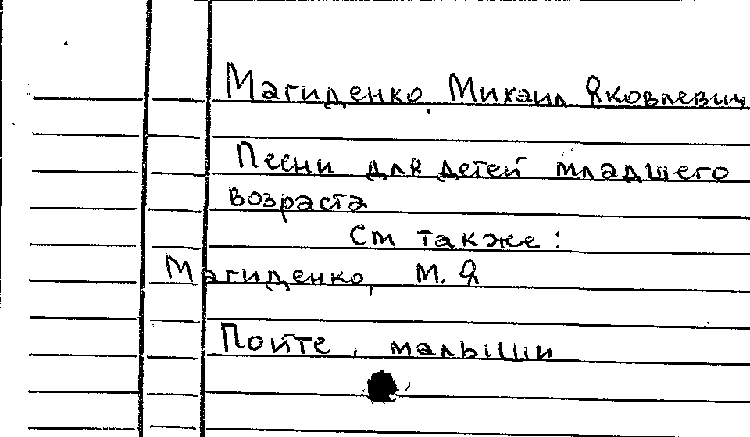 Магиденко, Михаил Яковлевич
Песни для детей младшего
возраста
См также:
Магиденко, М. Я
Пойте, малыши